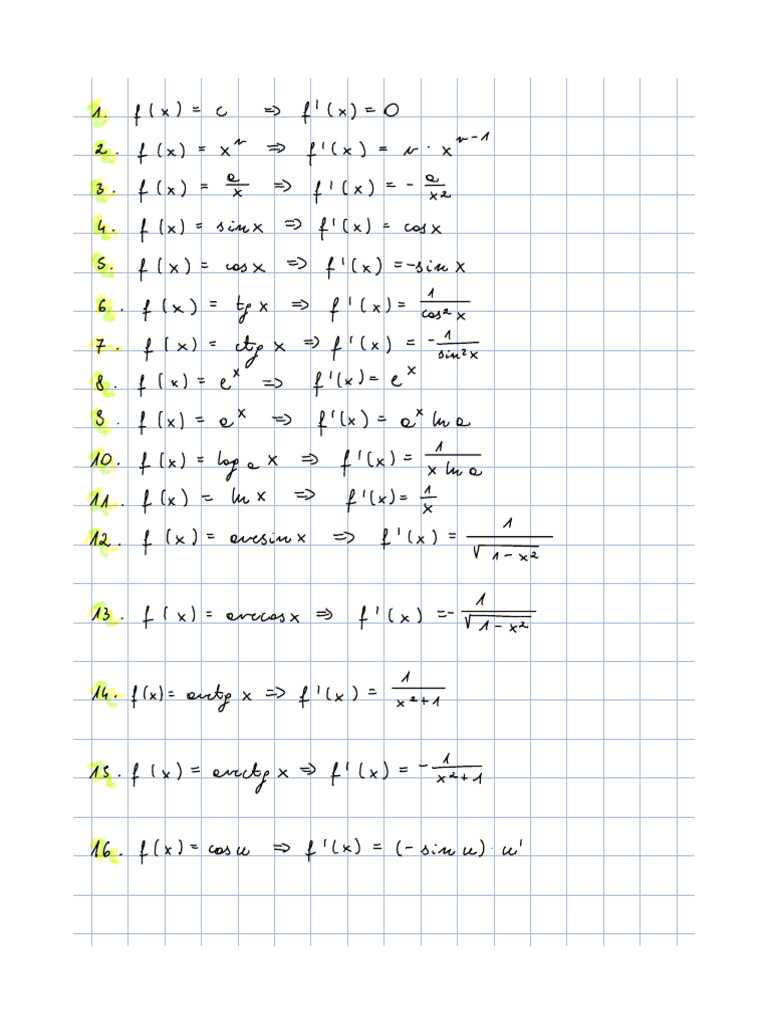 1. f(x) = c ⇒ f'(x) = 0
2. f(x) = x^n ⇒ f'(x) = n · x^(n-1)
3. f(x) = a/x ⇒ f'(x) = - a/x²
4. f(x) = sin x ⇒ f'(x) = cos x
5. f(x) = cos x ⇒ f'(x) = -sin x
6. f(x) = tg x ⇒ f'(x) = 1/cos² x
7. f(x) = ctg x ⇒ f'(x) = - 1/sin² x
8. f(x) = e^x ⇒ f'(x) = e^x
9. f(x) = a^x ⇒ f'(x) = a^x ln a
10. f(x) = log_a x ⇒ f'(x) = 1/(x ln a)
11. f(x) = ln x ⇒ f'(x) = 1/x
12. f(x) = arcsin x ⇒ f'(x) = 1/√(1-x²)
13. f(x) = arccos x ⇒ f'(x) = - 1/√(1-x²)
14. f(x) = arctg x ⇒ f'(x) = 1/(x²+1)
15. f(x) = arcctg x ⇒ f'(x) = - 1/(x²+1)
16. f(x) = cos u ⇒ f'(x) = (- sin u) · u'